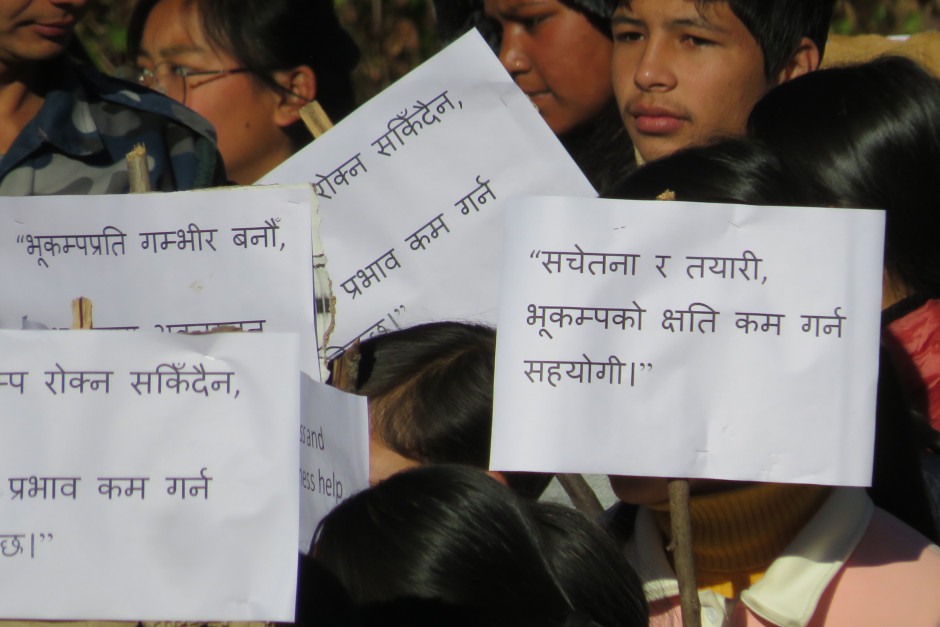 रोक्न सकिँदैन,
प्रभाव कम गर्न
छ।”
“भूकम्पप्रति गम्भीर बनौँ,
“सचेतना र तयारी,
भूकम्पको क्षति कम गर्न
सहयोगी।”
रोक्न सकिँदैन,
प्रभाव कम गर्न
छ।”
and
help